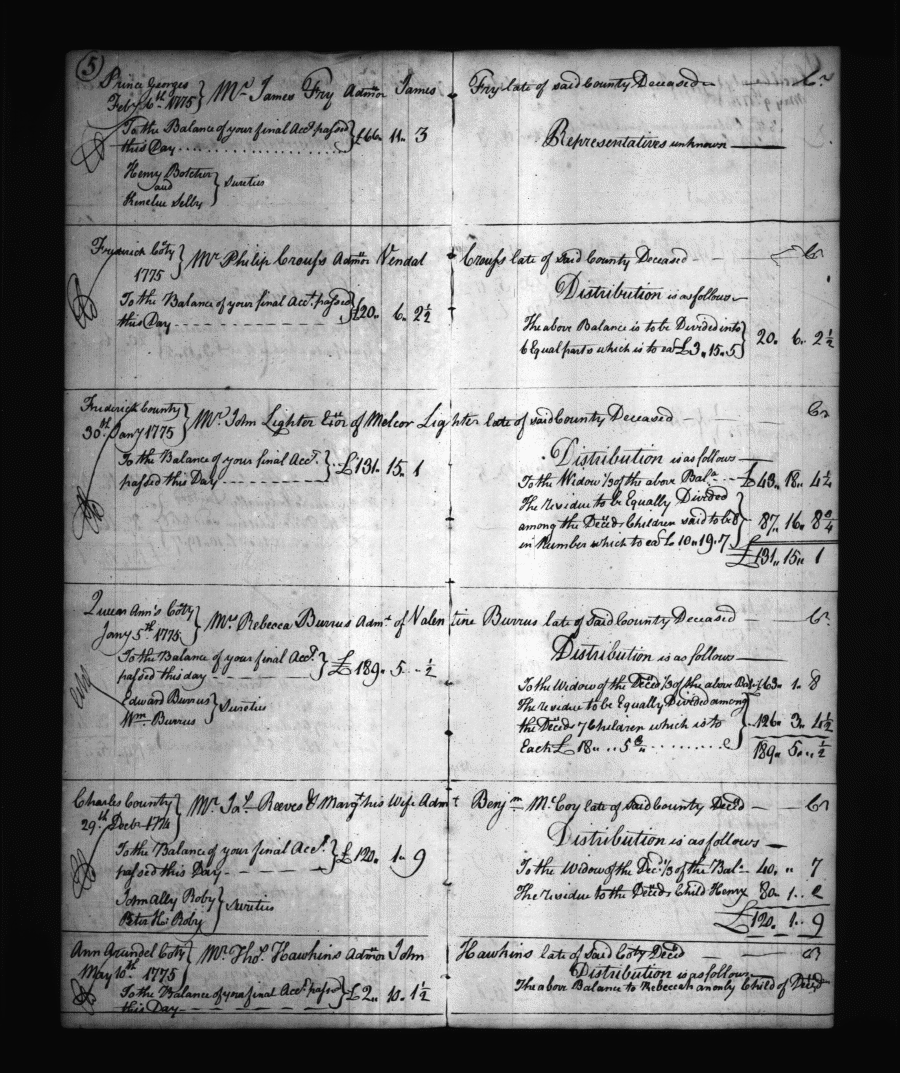 (5)
Prince Georges
Feby 6th 1775 } Mr James Fry Admor James Fry late of said County Deceased Cr
To the Balance of your final Acct. passed
this Day } £66 " 11 " 3
Representatives unknown
Henry Botcher
and
Kenelm Selby } Sureties
Frederick Coty
1775 } Mr Philip Creufs Admor Vendal Creufs late of Said County Deceased Cr
Distribution is as follows
To the Balance of your final Acct. passed
this Day } £20 " 6 " 2½
The above Balance is to be Divided into
6 Equal parts which is to ea £3 " 15 " 5 } 20 " 6 " 2½
Frederick County
30th Jany 1775 } Mr John Lighter Exor of Melcor Lighter late of said County Deceased Cr
Distribution is as follows
To the Balance of your final Acct.
passed this Day } £131 " 15 " 1
To the Widow ⅓ of the above Bala £43 " 18 " 4¼
The residue to be Equally Divided
among the Deced Children said to be 8
in Number which to ea £10 " 19 " 7 } 87 " 16 " 8¾
£131 " 15 " 1
Queen Ann's Coty
Jany 5th 1775 } Mrs Rebecca Burrus Admt of Valentine Burrus late of Said County Deceased Cr
Distribution is as follows
To the Balance of your final Acct.
passed this day } £189 " 5 " ½
Edward Burrus
Wm Burrus } Sureties
To the Widow of the Deced ⅓ of the above Bala £63 " 1 " 8
The residue to be Equally Divided among
the Deceds 7 Children which is to
Each £18 " " 5 } 126 " 3 " 4½
189 " 5 " ½
Charles County
29th Decbr 1774 } Mr Jas Reeves & Margt his Wife Admt Benjm McCoy late of Said County Deced Cr
Distribution is as follows
To the Balance of your final Acct.
passed this Day } £120 " 1 " 9
To the Widow of the Deced ⅓ of the Bala 40 " " 7
The residue to the Deceds Child Henry 80 " 1 " 2
£120 " 1 " 9
John Ally Roby
Peter H. Roby } Sureties
Ann Arundel Coty
May 10th 1775 } Mr Thos Hawkins Admor John Hawkins late of Said Coty Deced Cr
Distribution is as follows
To the Balance of your final Acct passed
this Day } £2 " 10 " 1½
The above Balance to Rebeccah an only Child of Deced